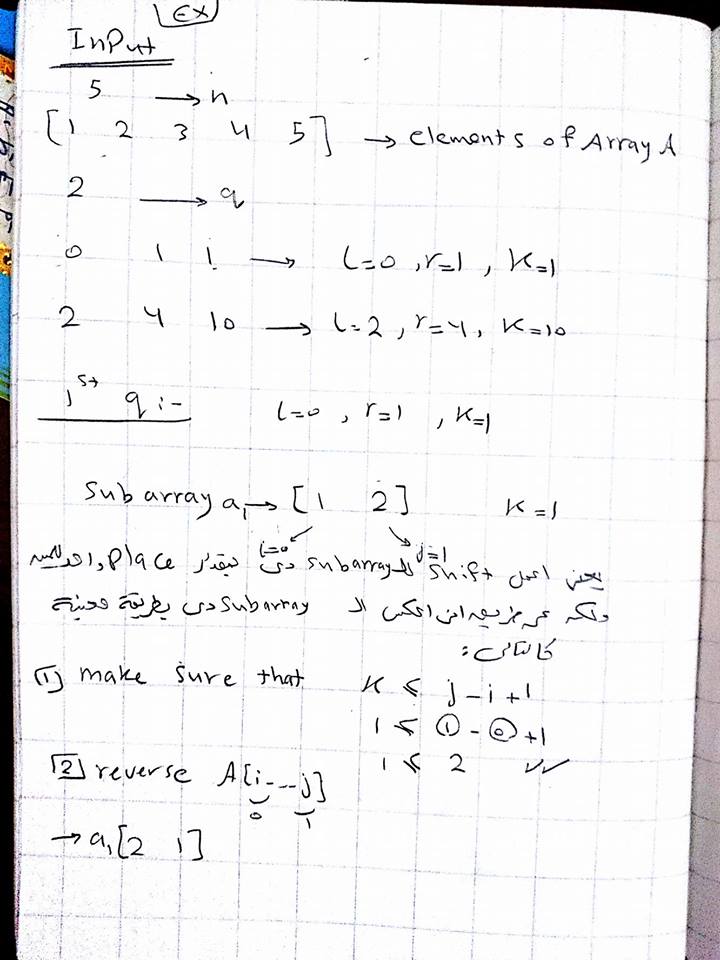 EX
InPut
5 → n
[1 2 3 4 5] → elements of Array A
2 → q
0 1 1 → l=0 , r=1 , K=1
2 4 10 → l=2 , r=4 , K=10
1st q :- l=0 , r=1 , K=1
Sub array a1 → [1 2] K=1
i=0 j=1
يعنى اعمل Shift للـ subarray دى بمقدار place واحد لليمين
ولكن عن طريق انى اعكس الـ Subarray دى بطريقة معينة
كالتالى :
(1) make sure that K ≤ j-i+1
1 ≤ 1 - 0 +1
1 ≤ 2 ✓✓
[2] reverse A[i---j]
0 1
→ a1[2 1]